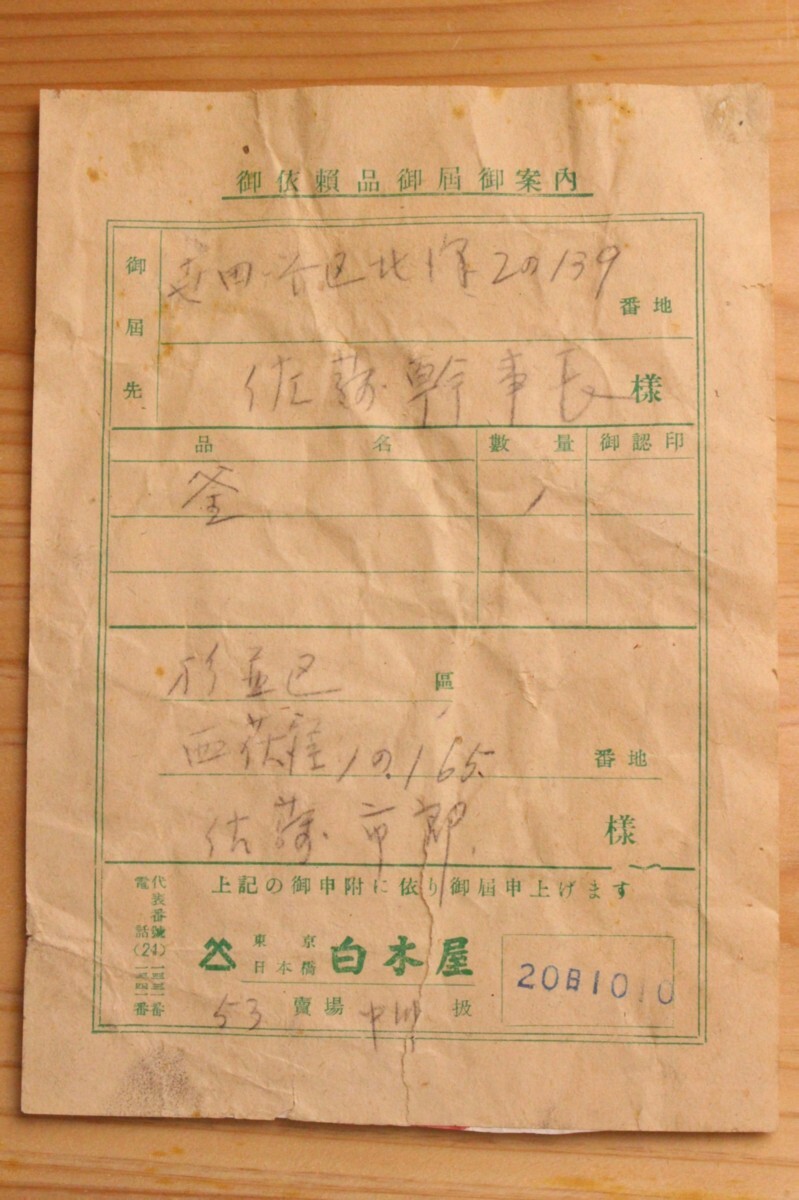 御依賴品御屆御案內
御屆先
世田谷区北沢2の139
番地
佐藤幹事長 様
品名 數量 御認印
釜 1
杉並区 區
西荻窪1の165 番地
佐藤市郎 様
上記の御申附に依り御屆申上げます
電話
代表番號
(24)
東京
日本橋 白木屋
20日1010
53 賣場 中川 扱